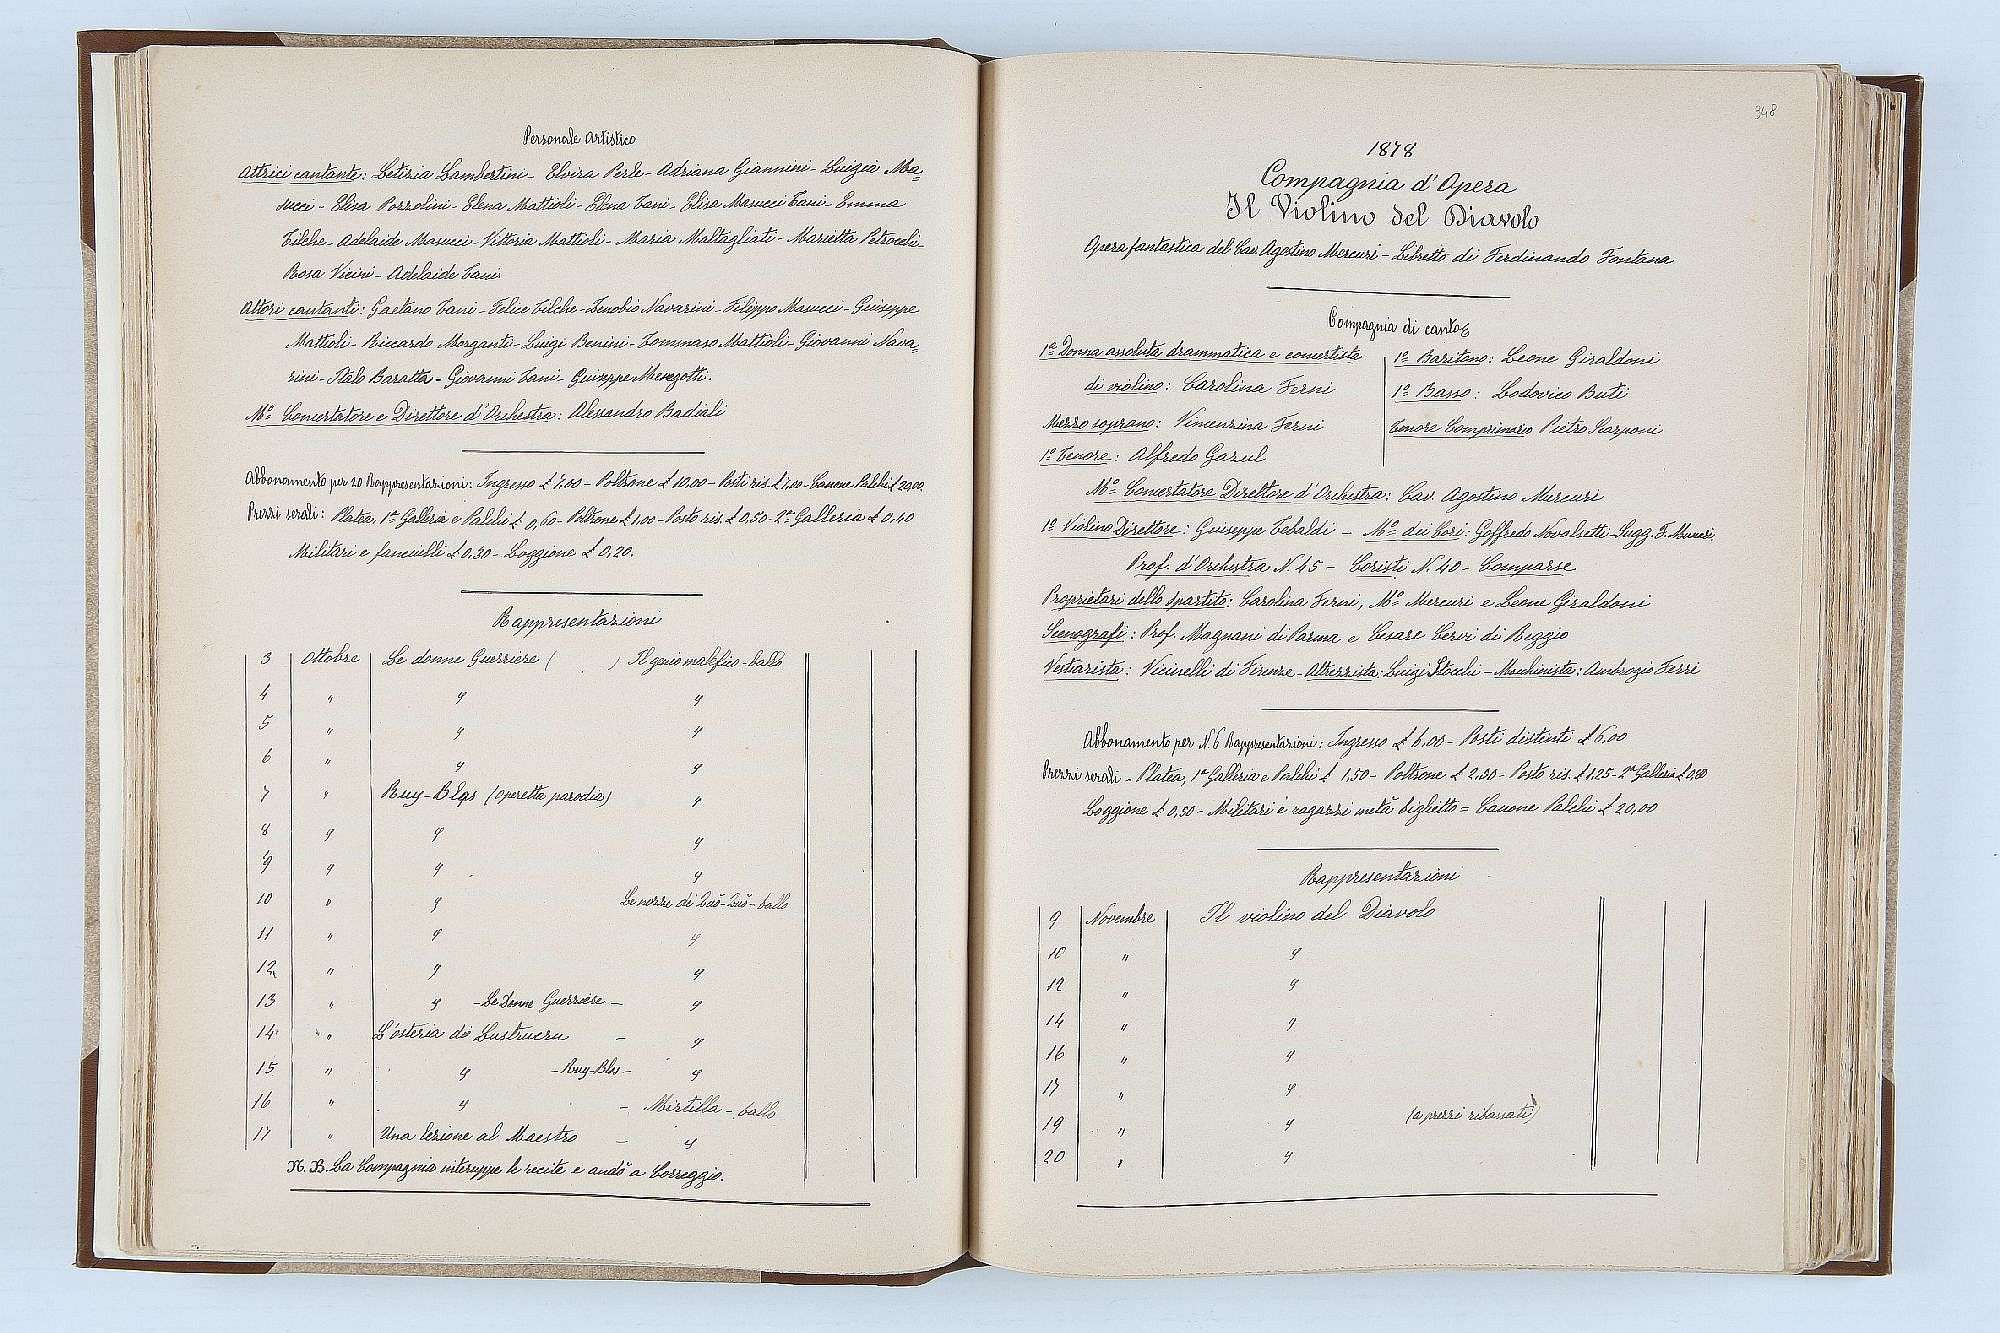 Personale Artistico
Attrici cantante: Letizia Lambertini - Elvira Perle - Adriana Giannini - Luigia Ma=
succi - Elisa Pozzolini - Elena Mattioli - Elena Tani - Elisa Masucci Tani - Emma
Tilche - Adelaide Masucci - Vittoria Mattioli - Maria Maltagliati - Marietta Petroceli -
Rosa Vicini - Adelaide Tani
Attori cantanti: Gaetano Tani - Felice Tilche - Zenobio Navarini - Filippo Masucci - Giuseppe
Mattioli - Riccardo Morganti - Luigi Benini - Tommaso Mattioli - Giovanni Nava=
rini - Italo Baratta - Giovanni Tani - Giuseppe Menegotti.
Mo. Concertatore e Direttore d'Orchestra: Alessandro Badiali
Abbonamento per 20 Rappresentazioni: Ingresso £ 7,00 - Poltrone £ 10,00 - Posti ris. £ 7,00 - Canone Palchi £ 20,00
Prezzi serali: Platea, 1a Galleria e Palchi £ 0,60 - Poltrone £ 1,00 - Posto ris. £ 0,50 - 2a Galleria £ 0,40
Militari e fanciulli £ 0,30 - Loggione £ 0,20.
Rappresentazioni
3 Ottobre Le donne Guerriere ( ) Il genio malefico - ballo
4 " " "
5 " " "
6 " " "
7 " Ruy-Blas (operetta parodia) "
8 " " "
9 " " "
10 " " Le nozze di - ballo
11 " " "
12 " " "
13 " " - Le Donne Guerriere - "
14 " L'osteria di Lustrucru - "
15 " " - Ruy-Blas - "
16 " " - Mirtilla - ballo
17 " Una lezione al Maestro - "
N.B. La Compagnia interuppe le recite e andò a Correggio.
348
1878
Compagnia d'Opera
Il Violino del Diavolo
Opera fantastica del Cav. Agostino Mercuri - Libretto di Ferdinando Fontana
Compagnia di canto
1a Donna assoluta drammatica e concertista
di violino: Carolina Ferni
Mezzo soprano: Vincenzina Ferni
1o Tenore: Alfredo Gazul
1o Baritono: Leone Giraldoni
1o Basso: Lodovico Buti
Tenore Comprimario Pietro Scarponi
Mo Concertatore Direttore d'Orchestra: Cav. Agostino Mercuri
1o Violino Direttore: Giuseppe Tebaldi - Mo dei Cori: Goffredo - Sugg. F.
Prof. d'Orchestra N. 45 - Coristi N. 40 - Comparse
Proprietari dello spartito: Carolina Ferni, Mo Mercuri e Leone Giraldoni
Scenografi: Prof. Magnani di Parma e Cesare Cervi di Reggio
Vestiarista: Vicinelli di Firenze - Attrezzista: Luigi Stocchi - Macchinista: Ambrogio Ferri
Abbonamento per N. 6 Rappresentazioni: Ingresso £ 6,00 - Posti distinti £ 6,00
Prezzi serali - Platea, 1a Galleria e Palchi £ 1,50 - Poltrone £ 2,30 - Posto ris. £ 1,25 - 2a Galleria £
Loggione £ 0,50 - Militari e ragazzi metà biglietto = Canone Palchi £ 20,00
Rappresentazioni
9 Novembre Il violino del Diavolo
10 " "
12 " "
14 " "
16 " "
17 " "
19 " " (a prezzi ribassati)
20 " "